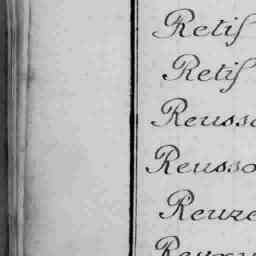 Retif
Retif
Reusso
Reusso
Reuze